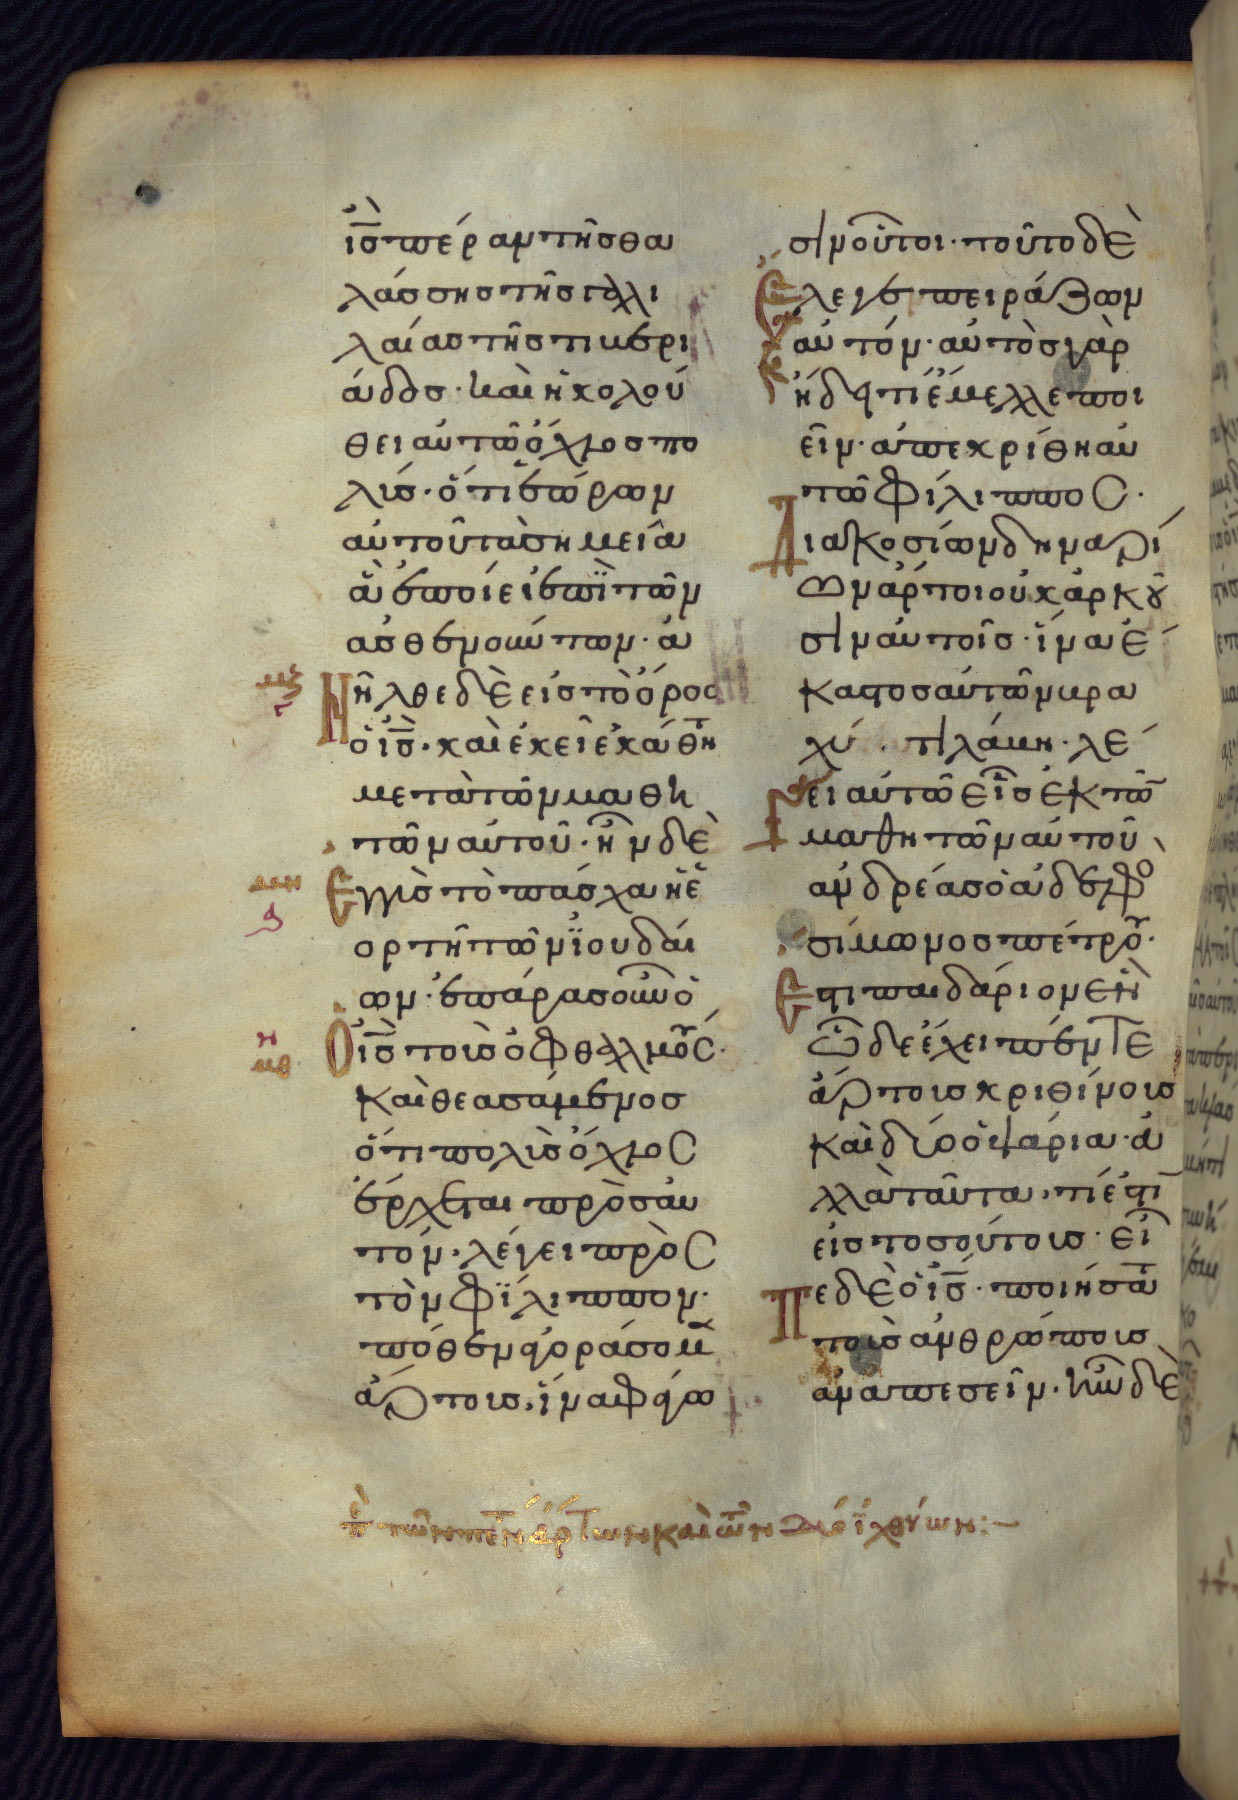 ὁ ις̅ πέραν τῆς θα
λάσσης τῆς γαλι
λαίας τῆς τιβερι
άδος· καὶ ἠκολού
θει αὐτῶ ὄχλος πο
λύς· ὅτι ἑώρων
αὐτοῦ τὰ σημεῖα
ἃ ἐποίει ἐπὶ τῶν
ἀσθενούντων· ἀ
μζ
νῆλθε δὲ εἰς τὸ ὄρος
ὁ ις̅· καὶ ἐκεῖ ἐκάθη
μετὰ τῶν μαθη
τῶν αὐτοῦ· ἦν δὲ
μη
ἐγγὺς τὸ πάσχα ἡ ἑ
ορτὴ τῶν ϊουδαί
ων· ἐπάρας οὖν ὁ
η
μθ
ὁ ις̅ τοὺς ὀφθαλμοὺς·
καὶ θεασάμενος
ὅτι πολὺς ὄχλος
ἔρχεται πρὸς αὐ
τόν· λέγει πρὸς
τὸν φίλιππον·
πόθεν ἀγοράσομεν
ἄρτους, ἵνα φάγω
σιν οὗτοι· τοῦτο δὲ
ἔλεγε πειράζων
αὐτόν· αὐτὸς γὰρ
ἤδει τί ἔμελλε ποι
εῖν· ἀπεκρίθη αὐ
τῶ φίλιππος·
Διακοσίων δηναρί
ων ἄρτοι οὐκ ἀρκοῦ
σιν αὐτοῖς· ἵνα ἕ
καστος αὐτῶν βρα
χύ τι λάβη· λέ
γει αὐτῶ εἷς ἐκ τῶν
μαθητῶν αὐτοῦ
ἀνδρέας ὁ ἀδελφὸς
σίμωνος πέτρου·
Ἔστι παιδάριον ἓν
ὧδε ἔχει πέντε
ἄρτους κριθίνους
καὶ δύο ὀψάρια· ἀ
λλὰ ταῦτα, τί ἐστιν
εἰς τοσούτους· εἶ
πε δὲ ὁ ις̅· ποιήσατε
τοὺς ἀνθρώπους
ἀναπεσεῖν· ἦν δὲ
π τῶν πέντε ἄρτων καὶ τῶν δύο ἰχθύων:—